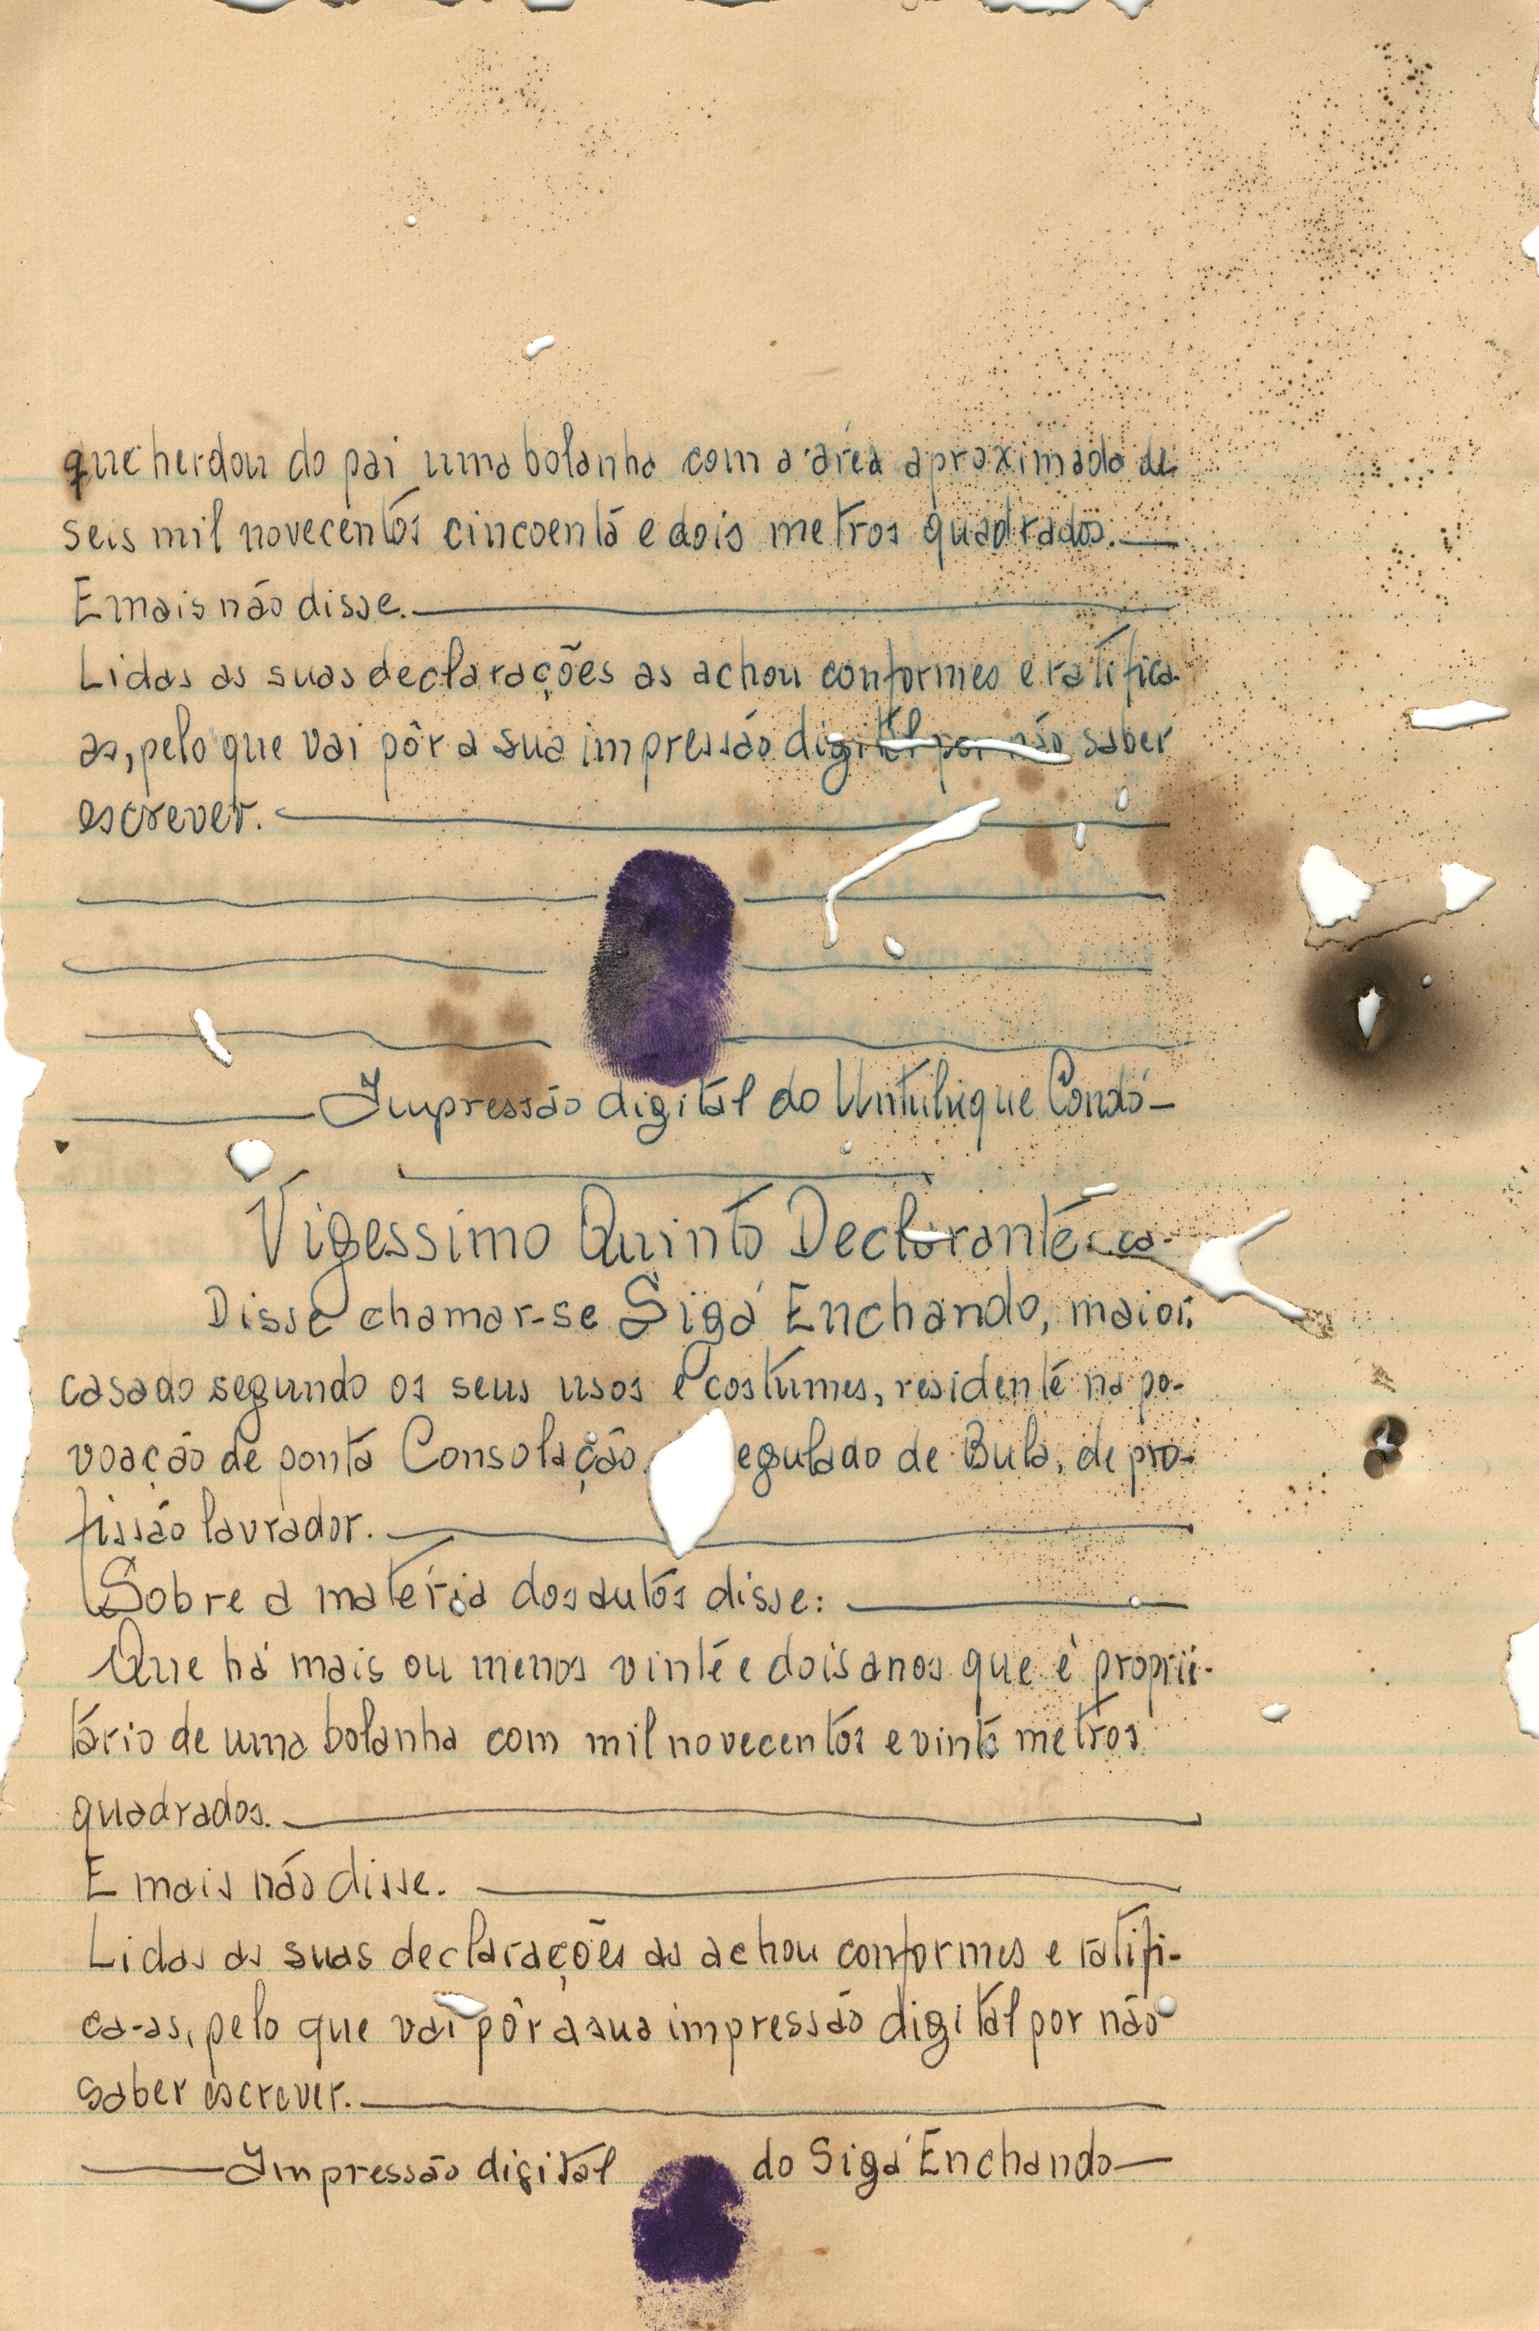 que herdou do pai uma bolanha com a área aproximada de
seis mil novecentos cincoenta e dois metros quadrados.
E mais não disse.
Lidas as suas declarações as achou conformes e ratifica-
as, pelo que vai pôr a sua impressão digital por não saber
escrever.
Impressão digital do Untuhique Condó
Vigessimo Quinto Declarante
Disse chamar-se Sigá Enchando, maior,
casado segundo os seus usos e costumes, residente na po-
voação de ponta Consolação, egulado de Bula, de pro-
fissão lavrador.
Sobre a matéria dos autos disse:
Que há mais ou menos vinte e dois anos que é proprie-
tário de uma bolanha com mil novecentos e vinte metros
quadrados.
E mais não disse.
Lidas as suas declarações as achou conformes e ratifi-
ca-as, pelo que vai pôr a sua impressão digital por não
saber escrever.
Impressão digital do Sigá Enchando